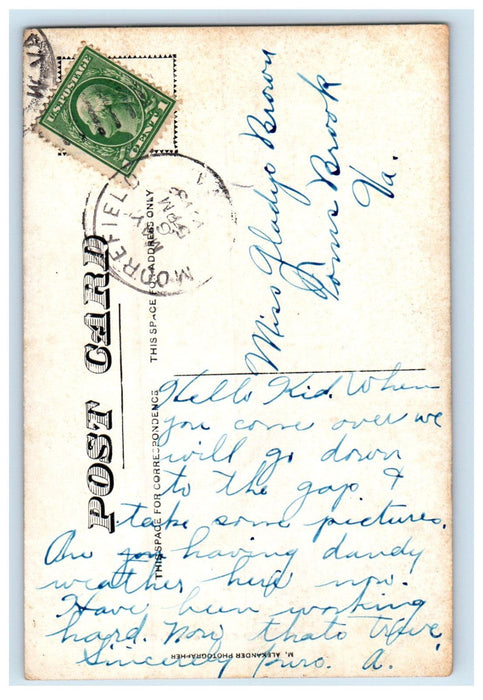 U.S. POSTAGE
1 CENT 1
MOOREFIELD
MAY
8
PM
POST CARD
THIS SPACE FOR CORRESPONDENCE
THIS SPACE FOR ADDRESS ONLY
Miss Gladys Brown
Toms Brook
Va.
Hello Kid. When
you come over we
will go down
to the gap &
take some pictures.
Are you having dandy
weather here now.
Have been working
hard. Now thats true
Sincerely yurs. A.
M. ALEXANDER PHOTOGRAPHER